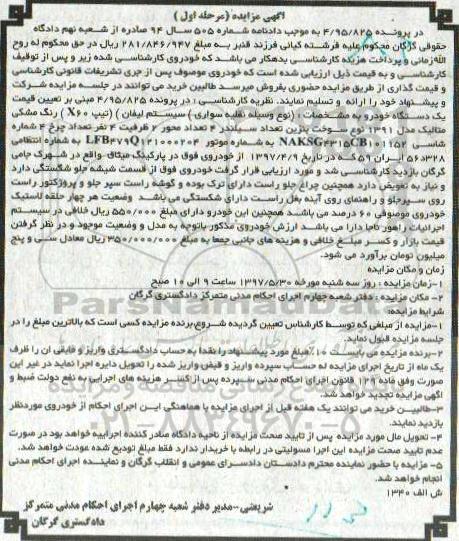 آگهی مزایده (مرحله اول )
در پرونده ۴/۹۵/۸۲۵ به موجب دادنامه شماره ۵۰۵ سال ۹۴ صادره از شعبه نهم دادگاه
حقوقی گرگان محکوم علیه فرشته کیانی فرزند قنبر به مبلغ ۲۸۱/۸۴۶/۹۴۷ ریال در حق محکوم له روح
الله زمانی و پرداخت هزینه کارشناسی بدهکار می باشد که خودروی کارشناسی شده زیر و پس از توقیف
کارشناسی و به قیمت ذیل ارزیابی شده است که خودروی موصوف پس از جری تشریفات قانونی کارشناسی
و قیمت گذاری از طریق مزایده حضوری بفروش میرسد طالبین خرید می توانند در جلسه مزایده شرکت
و پیشنهاد خود را ارائه و تسلیم نمایند. نظریه کارشناسی : در پرونده ۴/۹۵/۸۲۵ مبنی بر تعیین قیمت
یک دستگاه خودرو به مشخصات : (نوع وسیله نقلیه سواری ) سیستم لیفان ) (تیپ X۶۰ ) رنگ مشکی
متالیک مدل ۱۳۹۱ نوع سوخت بنزین تعداد سیلندر ۴ تعداد محور ۲ ظرفیت ۴ نفر تعداد چرخ ۴ شماره
شاسی NAKSG۴۳۱۵CB۱۰۱۱۵۲ به شماره موتور LFB۴۷۹Q۱۲۱۰۰۰۲۰۳ به شماره انتظامی
۵۶۳۲۸ ایران ۵۹ که در تاریخ ۱۳۹۷/۴/۹ از خودروی فوق در پارکینگ میثاق واقع در شهرک جامی
گرگان بازدید کارشناسی شد و مورد ارزیابی قرار گرفت خودروی فوق از قسمت شیشه جلو شکستگی دارد
و نیاز به تعویض دارد همچنین چراغ جلو راست دارای ترک بوده و گوشه راست سپر جلو و پروژکتور راست
روی سپرجلو و راهنمای روی آینه بغل راست دارای شکستگی می باشد وضعیت هر چهار حلقه لاستیک
خودروی موصوفی ۶۰ درصد می باشد همچنین این خودرو دارای مبلغ ۵۵۰/۰۰۰ ریال خلافی در سیستم
اجرائیات راهور ناجا دارا می باشد ارزش خودروی مذکور باتوجه به مدل و وضعیت موجود و در نظر گرفتن
قیمت بازار و کسر مبلغ خلافی و هزینه های جانبی جمعا به مبلغ ۳۵۰/۰۰۰/۰۰۰ ریال معادل سی و پنج
میلیون تومان برآورد می شود.
زمان و مکان مزایده
۱-زمان مزایده : روز سه شنبه مورخه ۱۳۹۷/۵/۳۰ ساعت ۹ الی ۱۰ صبح
۲- مکان مزایده : دفتر شعبه چهارم اجرای احکام مدنی متمرکز دادگستری گرگان
شرایط مزایده:
۱-مزایده از مبلغی که توسط کارشناس تعیین گردیده شروع.برنده مزایده کسی است که بالاترین مبلغ را در
جلسه مزایده قبول نماید.
۲-برنده مزایده می بایست ۱۰٪ مبلغ مورد پیشنهاد را نقدا به حساب دادگستری واریز و مابقی آن را ظرف
یک ماه از تاریخ اجرای مزایده له حساب سپرده واریز و قبض واریز شده را تحویل دایره اجرا نماید در غیر این
صورت وفق ماده ۱۲۹ قانون اجرای احکام مدنی سپرده پس از کسر هزینه های اجرایی به نفع دولت ضبط و
آگهی مزایده تجدید خواهد شد.
۳-طالبین خرید می توانند یک هفته قبل از اجرای مزایده با هماهنگی این اجرای احکام از خودروی موردنظر
بازدید نمایند.
۴- تحویل مال مورد مزایده پس از تایید صحت مزایده از ناحیه دادگاه صادر کننده اجراییه خواهد بود در صورت
عدم تایید صحت مزایده این اجرا مسولیتی در رابطه با خریدار ندارد فقط مبلغ تودیع شده عودت خواهد شد.
۵- مزایده با حضور نماینده محترم دادستان دادسرای عمومی و انقلاب گرگان و نماینده اجرای احکام مدنی
انجام خواهد شد.
ش الف ۱۳۴۰
شریعتی--مدیر دفتر شعبه چهارم اجرای احکام مدنی متمرکز
دادگستری گرگان
ParsNamadData
۰۲۱-۸۸۳۴۹۶۷۰-۵